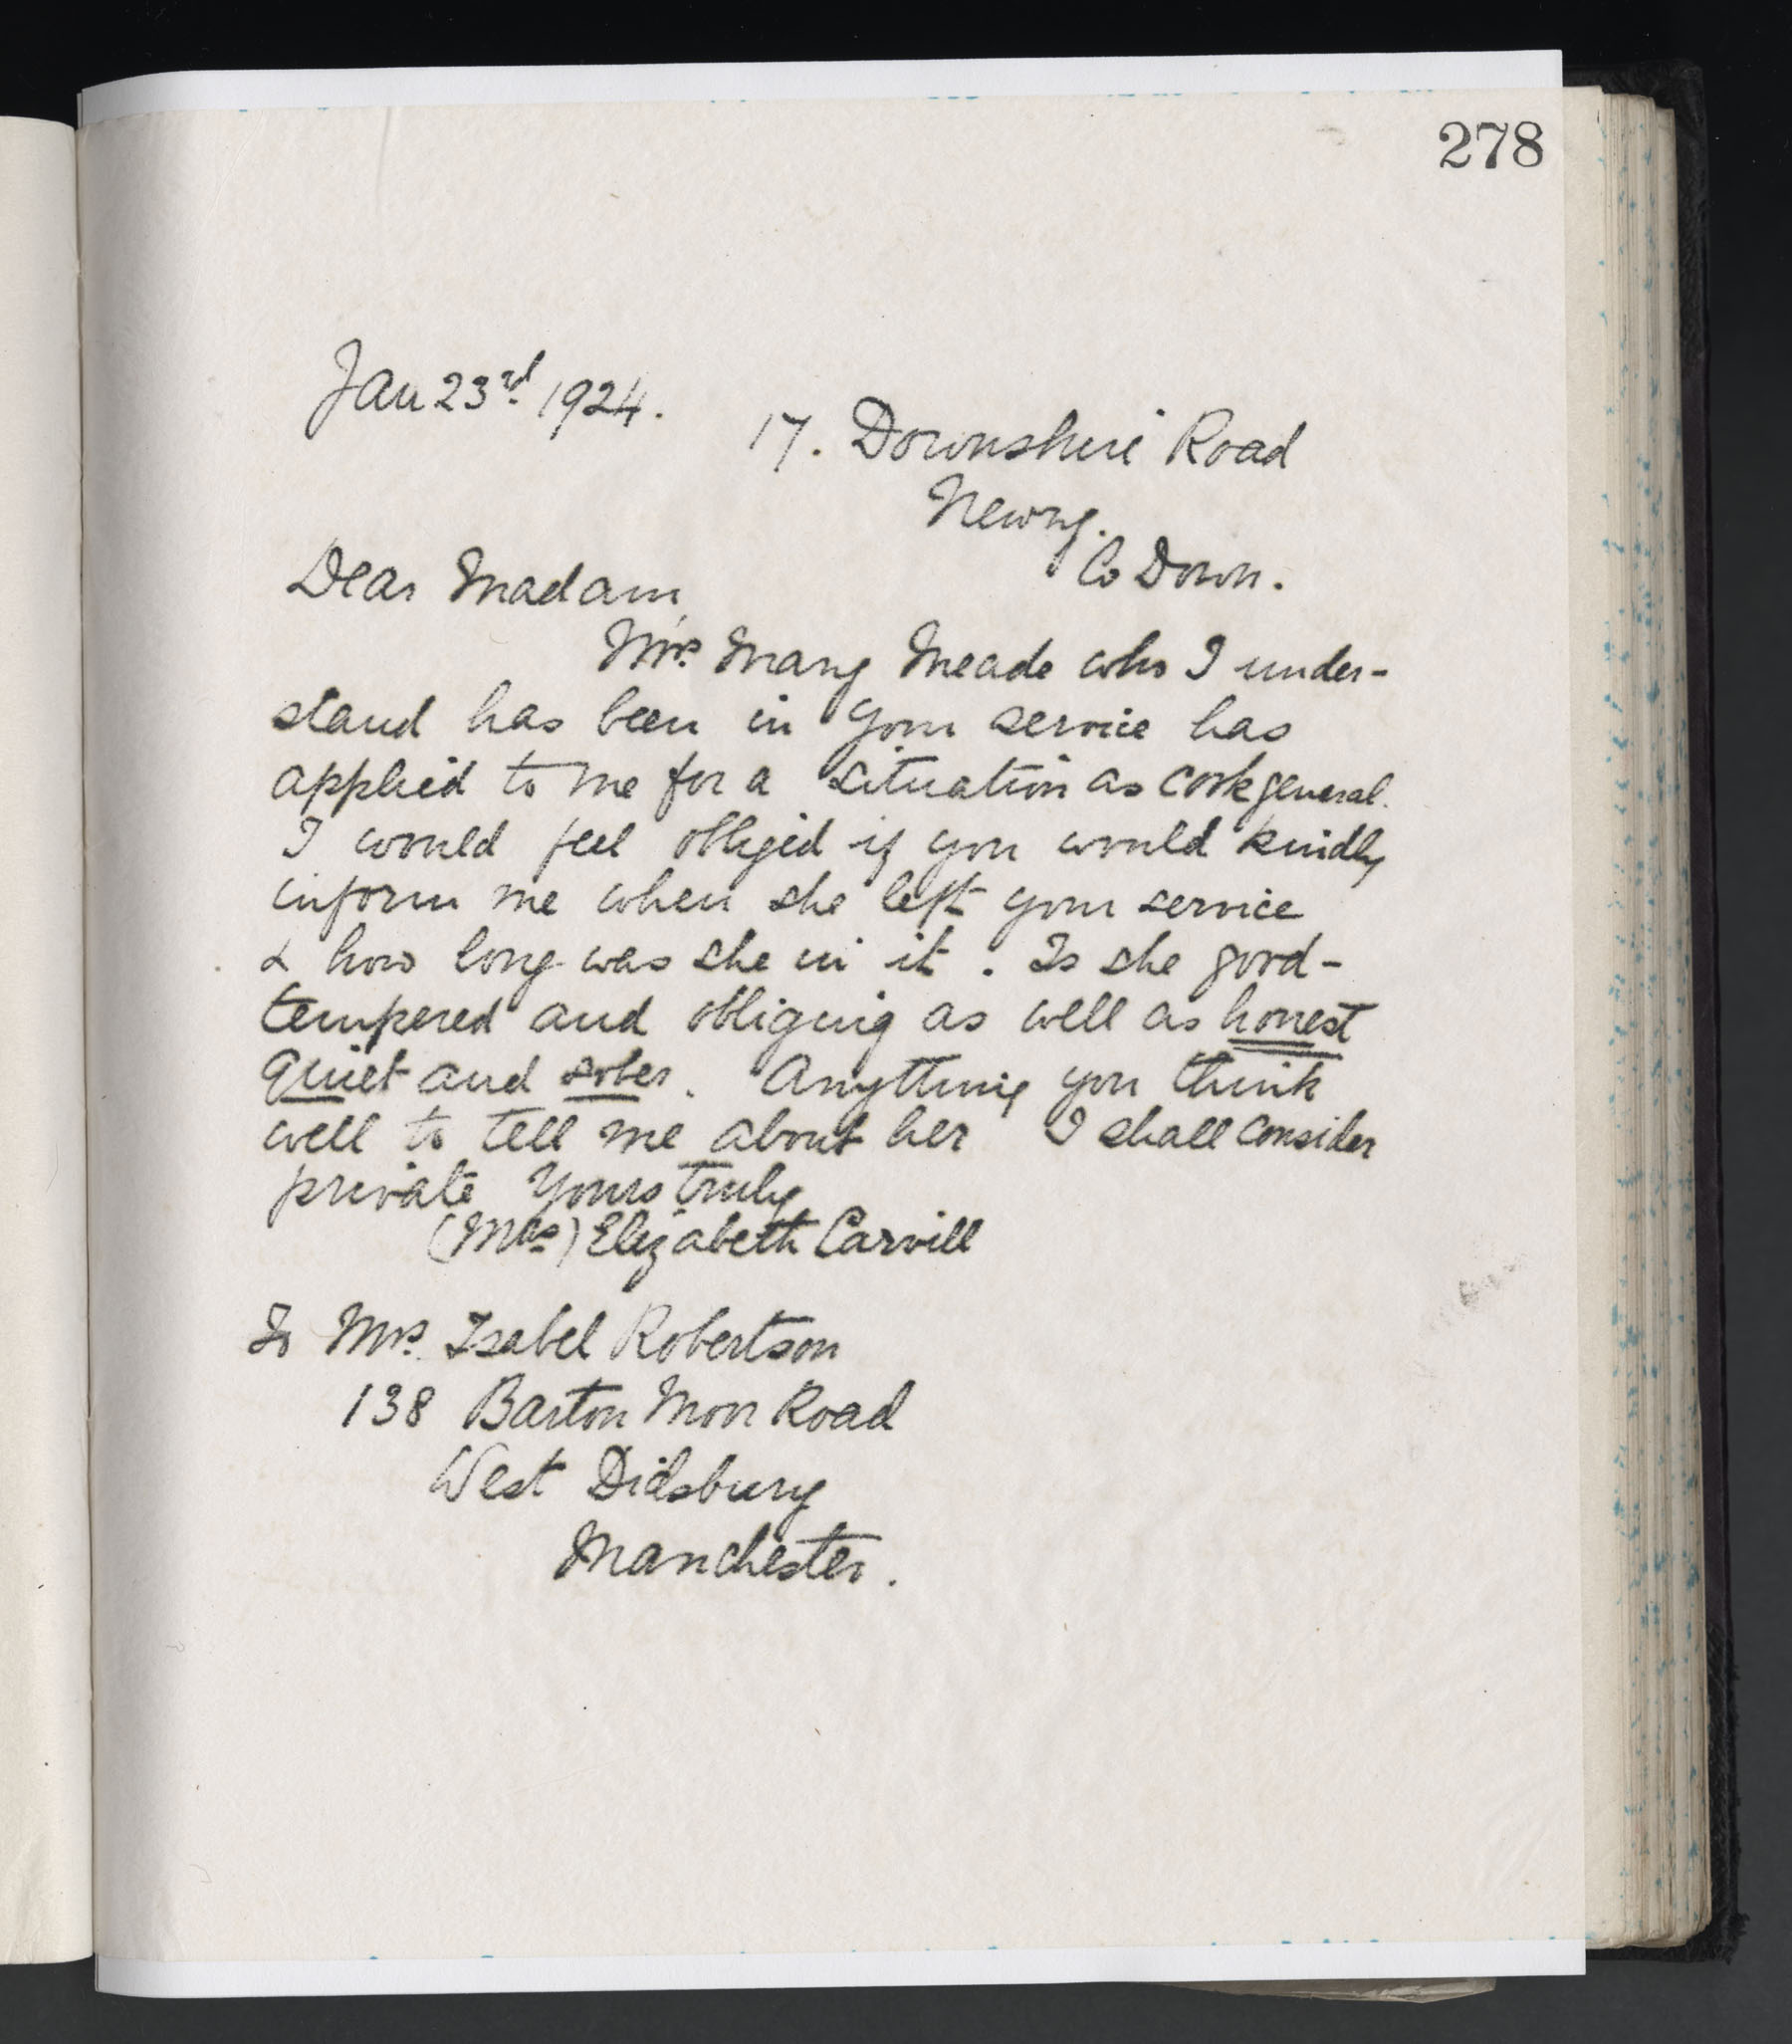 278
Jan 23rd 1924.
17. Downshire Road
Newry.
Co Down.
Dear Madam,
Mrs. Mary Meade who I under-
stand has been in your service has
applied to me for a situation as cook general.
I would feel obliged if you would kindly
inform me when she left your service
& how long was she in it. Is she good-
tempered and obliging as well as honest
quiet and sober. Anything you think
well to tell me about her I shall consider
private Yours truly
(Mrs) Elizabeth Carvill
To Mrs. Isabel Robertson
138 Barton Moor Road
West Didsbury
Manchester.